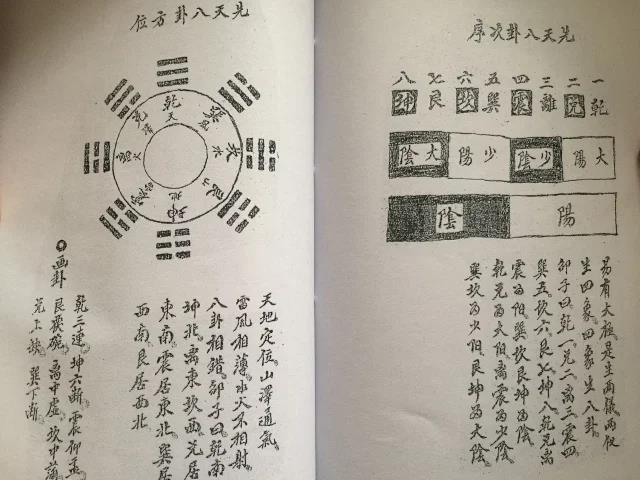 先天八卦次序
一乾
二兑
三離
四震
五巽
六坎
七艮
八坤
大陽
少陰
少陽
大陰
陽
陰
易有大極是生两儀两仪
生四象。四象生八卦
邵子曰乾一兑二离三震四
巽五坎六艮七坤八乾兑离
震為阳。巽坎艮坤為陰
乾兑為大阳。离震為少陰
巽坎為少阳。艮坤為大陰
先天八卦方位
乾天
巽風
坎水
坤地
天地定位。山澤通氣。
雷風相薄。水火不相射。
八卦相錯。邵子曰乾南
坤北。离東坎西。兑居
東南。震居東北。巽居
西南。艮居西北
画卦
乾三連。坤六断。震仰盂。
艮覆碗。离中虚。坎中满
兑上缺。巽下断。